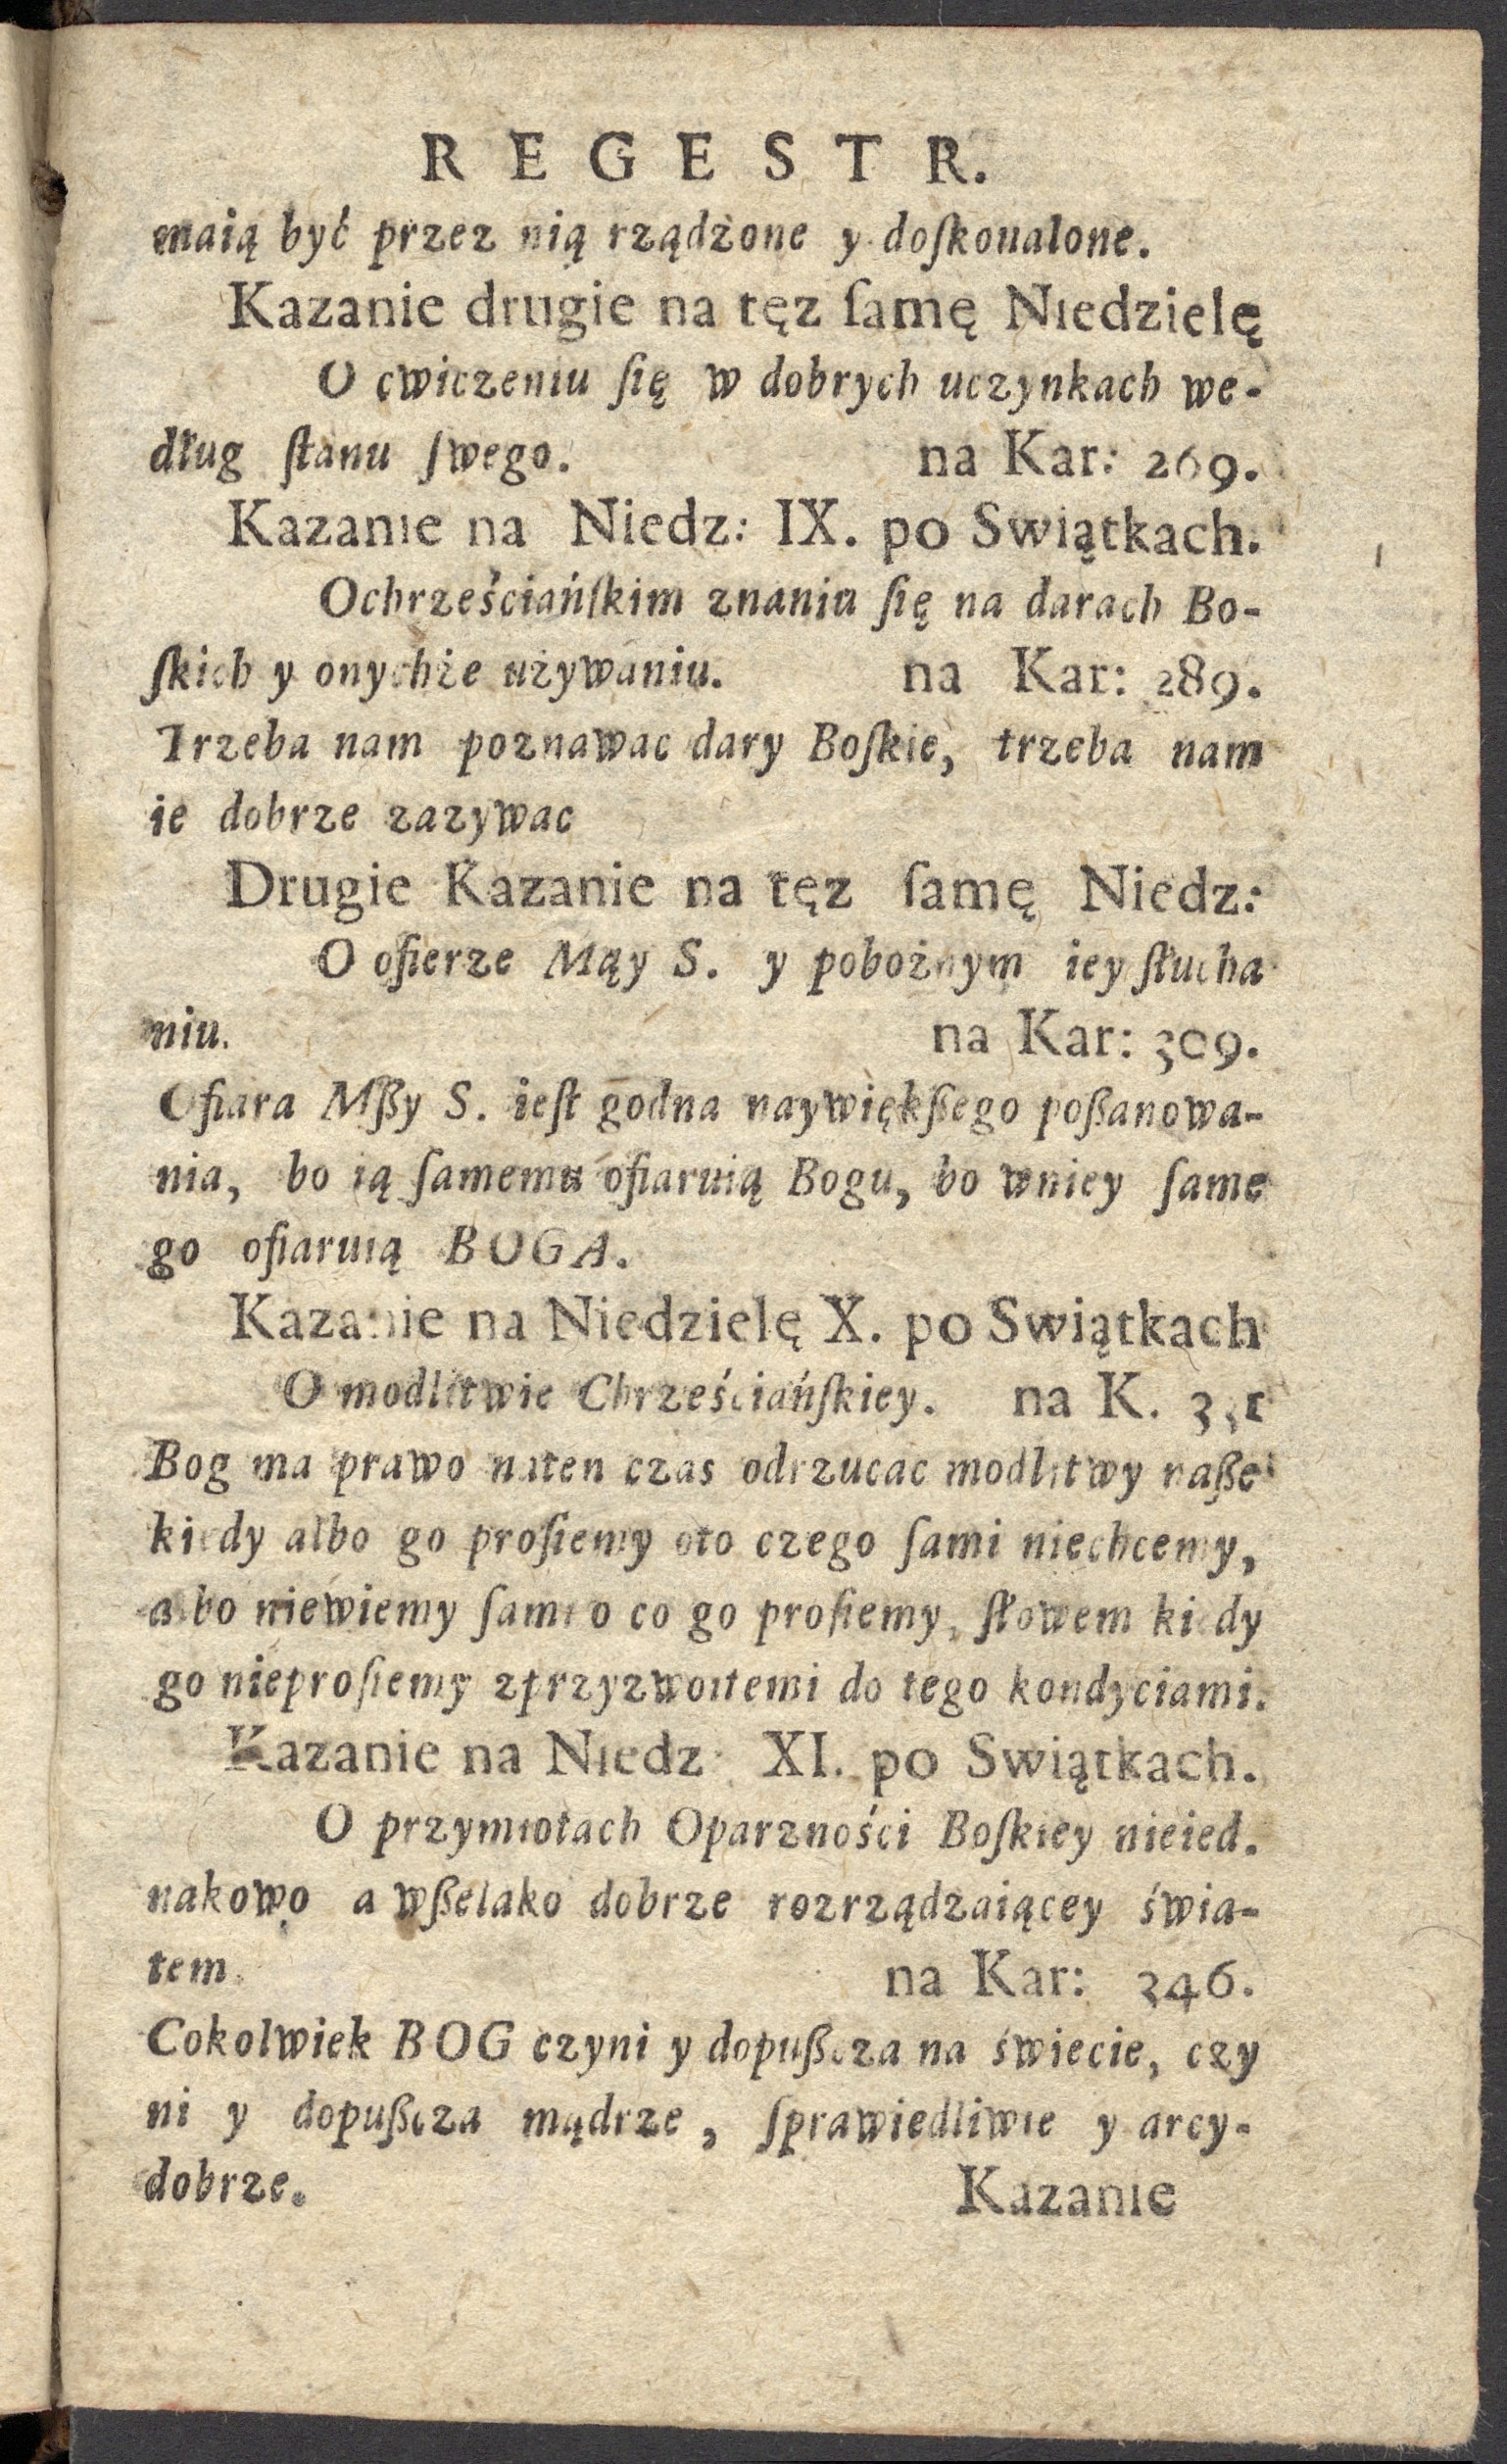 REGESTR.
maią być przez nią rządzone y doſkoualone.
Kazanie drugie na tęz ſamę Niedzielę
O cwiczeniu ſię w dobrych uczynkach we-
dług ſtanu ſwego. na Kar: 269.
Kazanie na Niedz: IX. po Swiątkach.
Ochrześciańſkim znaniu ſię na darach Bo-
ſkich y onychże używaniu. na Kar: 289.
Trzeba nam poznawac dary Boſkie, trzeba nam
ie dobrze zazywac
Drugie Kazanie na tęz ſamę Niedz:
O ofierze Mąy S. y pobożnym iey ſłucha
niu. na Kar: 309.
Ofiara Mßy S. ieſt godna naywiękßego poßanowa-
nia, bo ią ſamemu ofiaruią Bogu, bo wniey ſame
go ofiaruią BOGA.
Kazanie na Niedzielę X. po Swiątkach
O modlitwie Chrześciańſkiey. na K.
Bog ma prawo naten czas odrzucac modlitwy naße
kiedy albo go proſiemy oto czego ſami niechcemy,
albo niewiemy ſami o co go proſiemy, ſłowem kiedy
go nieproſiemy zprzyzwoitemi do tego kondyciami.
Kazanie na Niedz: XI. po Swiątkach.
O przymiotach Oparzności Boſkiey nieied.
nakowo a wßelako dobrze rozrządzaiącey świa-
tem. na Kar: 346.
Cokolwiek BOG czyni y dopußcza na świecie, czy
ni y dopußcza mądrze, ſprawiedliwie y arcy-
dobrze. Kazanie